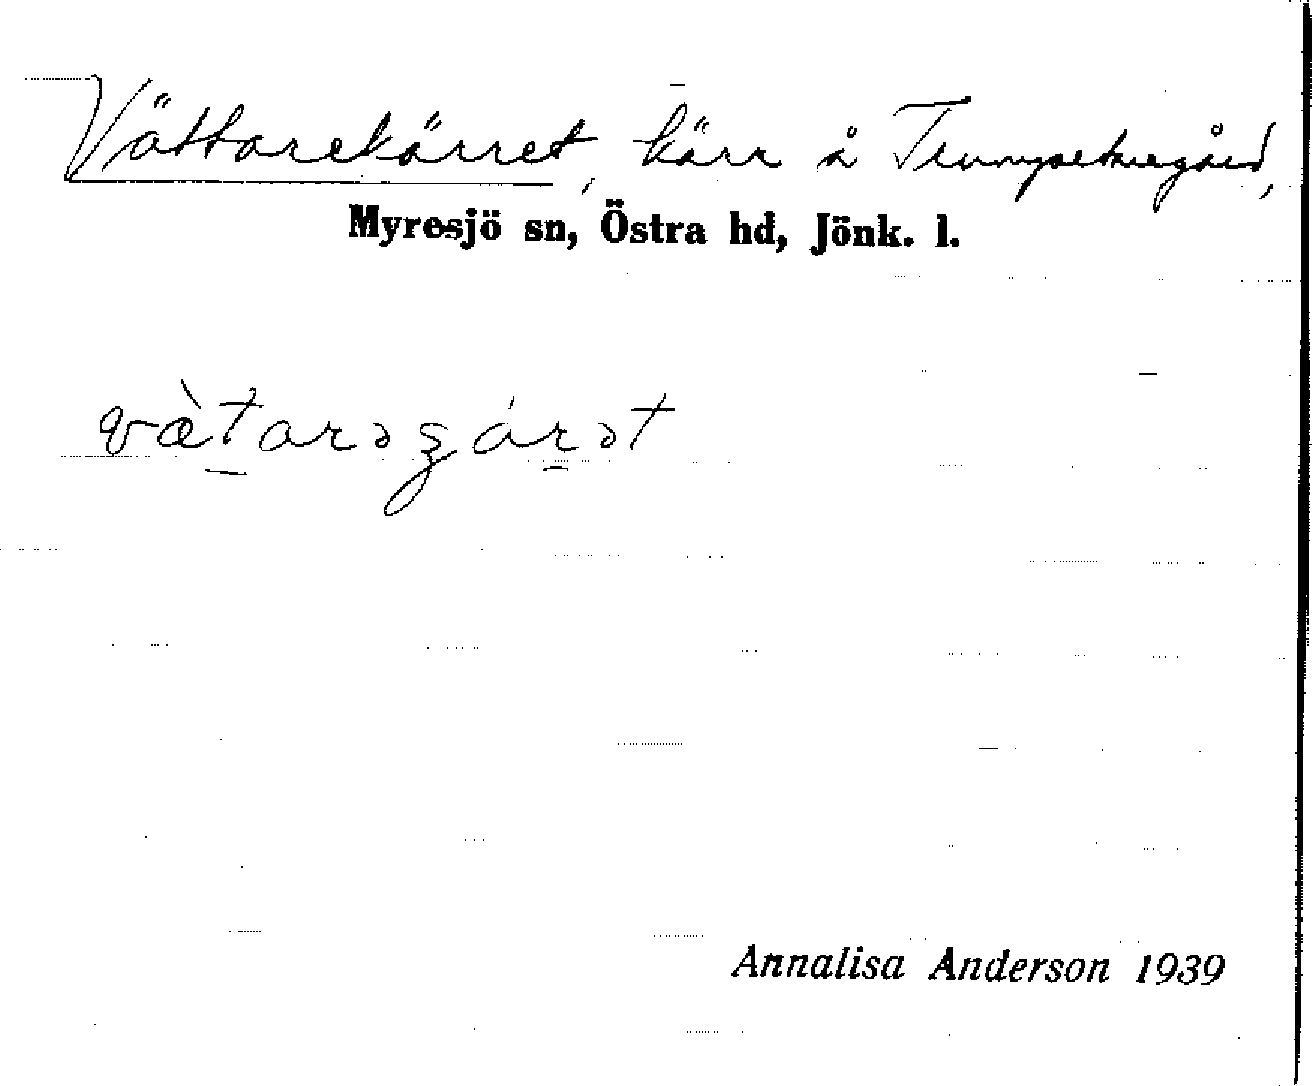 Vättarekärret, kärr å Trumpetaregård,
Myresjö sn, Östra hd, Jönk. l.
vætarəʒárət
Annalisa Anderson 1939